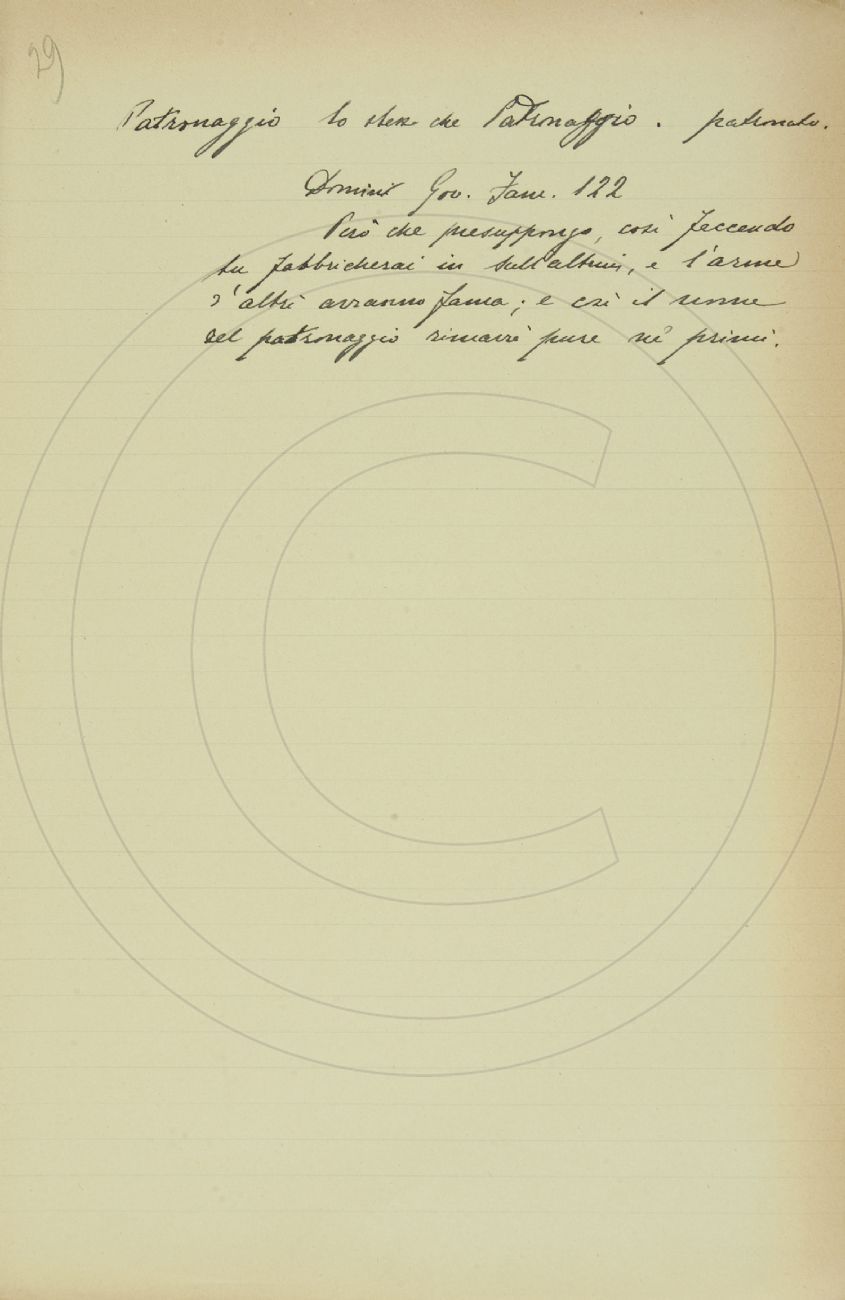 29
Patronaggio lo stesso che Patronaggio. patronato.
Domini Gov. Fam. 122
Però che presuppongo, così faccendo
tu fabbricherai in sull'altrui, e l'arme
d'altri avranno fama; e così il nome
del patronaggio rimarrà pure ne' primi.